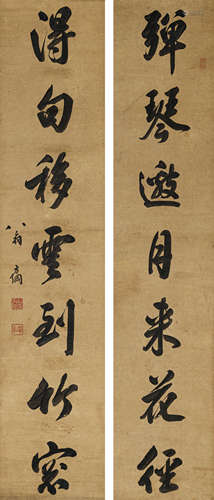 彈琴邀月来花徑
得句移雲到竹窗